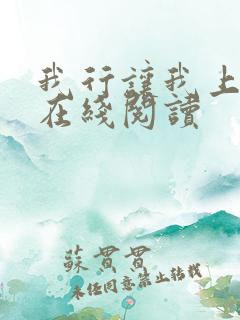 我行讓我上
在綫閱讀
蘇貫貫
未經同意禁止轉載